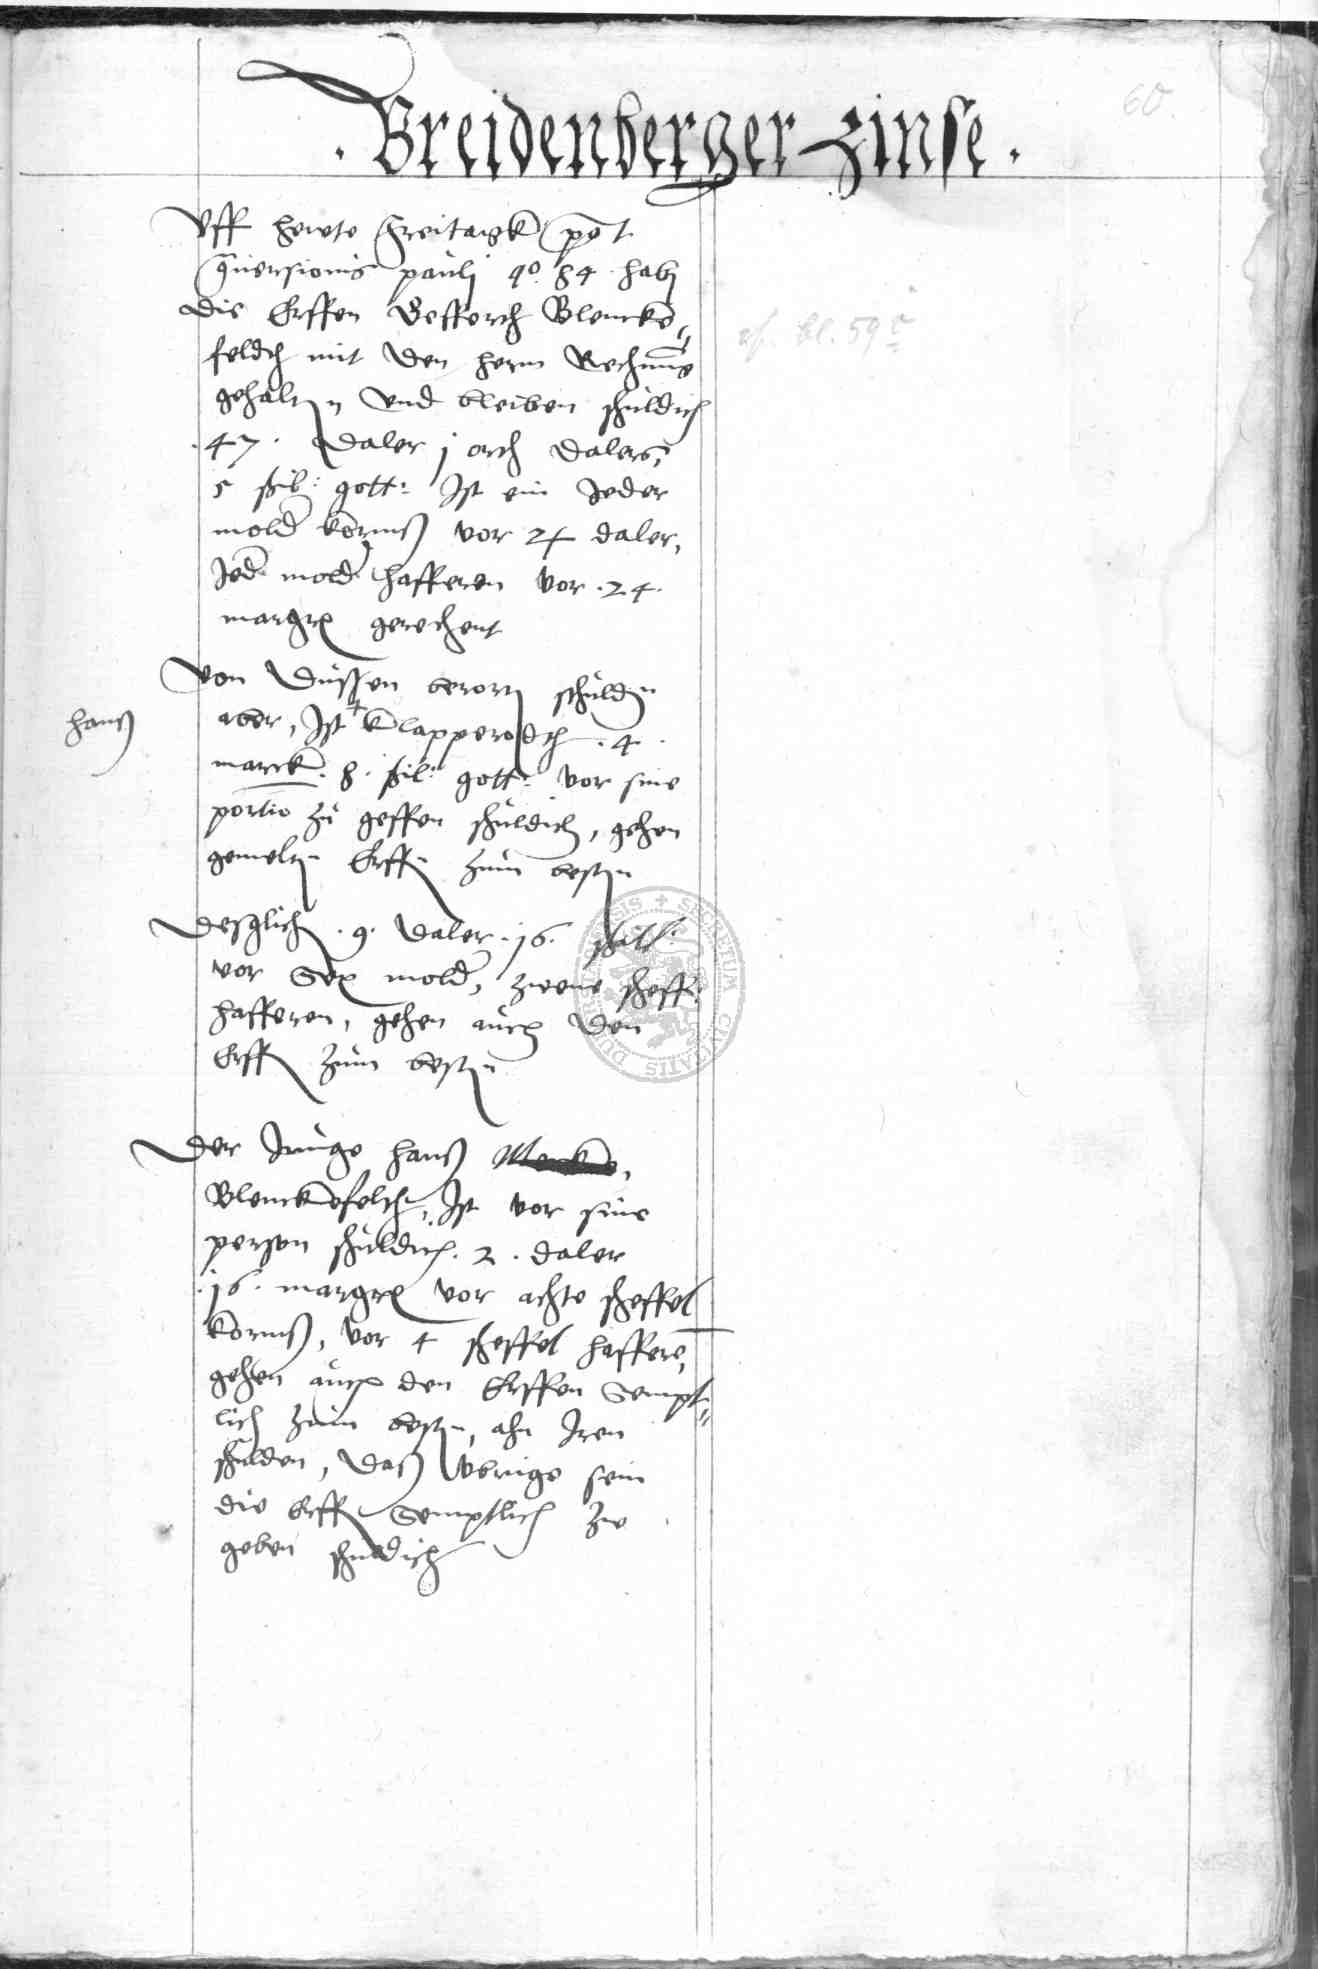 60.
. Breidenberger Zinse .
Uff hewte Freitagk post
Conversionis pauli ao. 84 . habn
die Erffen Deffert Blencke=
feldt mit den hern Rechnug
gehalten und bleiben schuldich
. 47 . daler j orth dalers,
5 schil: gott: Ist ein Jeder
mold korns vor daler,
Jed. mold hafferen vor . 24 .
margr gerechent
Von dussen berorten schulden
aber, Ist + Klapperodt . 4 .
hans
marck . 8 . schil: gott: vor sine
portio zu geffen schuldich, gehen
gemelten Erffen zum besten
desglich . 9 . daler . 16 . schill:
vor Sex mold, zwene scheff:
hafferen, gehen auch den
Erffen zum besten
Der Junge hans
Blenckefelth, Ist vor sine
person schuldich . 2 . daler
. 16 . margr vor achte scheffel
korns, vor 4 scheffel haffere,
gehen auch den Erffen Sempt=
lich zum besten, ahn Iren
schulden, das ubrige sein
die Erffen Semptlich zu
geben schuldich
cf. bl. 59 r
SECRETUM CIVITATIS